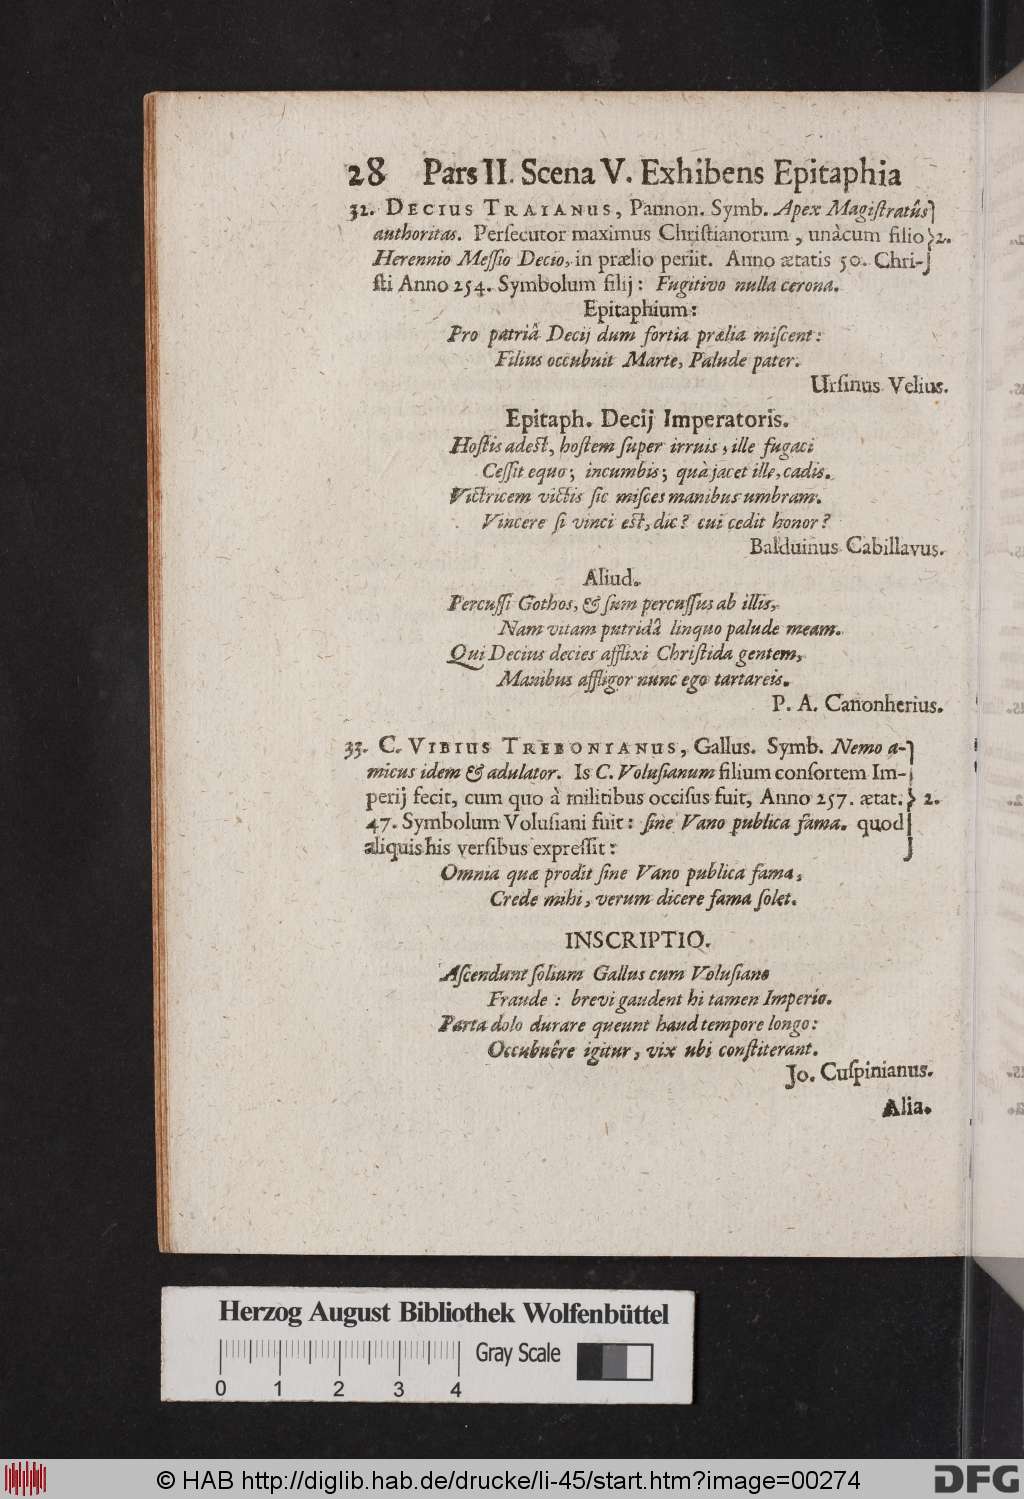 28 Pars II. Scena V. Exhibens Epitaphia
32. DECIUS TRAIANUS, Pannon. Symb. Apex Magiſtratûs
authoritas. Perſecutor maximus Chriſtianorum, unàcum filio 2.
Herennio Meſſio Decio, in prælio periit. Anno ætatis 50. Chri-
ſti Anno 254. Symbolum filij: Fugitivo nulla cerona.
Epitaphium:
Pro patriâ Decij dum fortia prælia miſcent:
Filius occubuit Marte, Palude pater.
Urſinus Velius.
Epitaph. Decij Imperatoris.
Hoſtis adeſt, hoſtem ſuper irruis, ille fugaci
Ceſſit equo; incumbis; quà jacet ille, cadis.
Victricem victis ſic miſces manibus umbram.
Vincere ſi vinci eſt, dic? cui cedit honor?
Balduinus Cabillavus.
Aliud.
Percuſſi Gothos, & ſum percuſſus ab illis,
Nam vitam putridâ linquo palude meam.
Qui Decius decies afflixi Chriſtida gentem,
Manibus affligor nunc ego tartareis.
P. A. Canonherius.
33. C. VIBIUS TREBONIANUS, Gallus. Symb. Nemo a-
micus idem & adulator. Is C. Voluſianum filium conſortem Im-
perij fecit, cum quo à militibus occiſus fuit, Anno 257. ætat. 2.
47. Symbolum Voluſiani fuit: ſine Vano publica fama. quod
aliquis his verſibus expreſſit:
Omnia quæ prodit ſine Vano publica fama,
Crede mihi, verum dicere fama ſolet.
INSCRIPTIO.
Aſcendunt ſolium Gallus cum Voluſiano
Fraude: brevi gaudent hi tamen Imperio.
Parta dolo durare queunt haud tempore longo:
Occubuêre igitur, vix ubi conſtiterant.
Jo. Cuſpinianus.
Alia.
Herzog August Bibliothek Wolfenbüttel
Gray Scale
0 1 2 3 4
© HAB http://diglib.hab.de/drucke/li-45/start.htm?image=00274
DFG